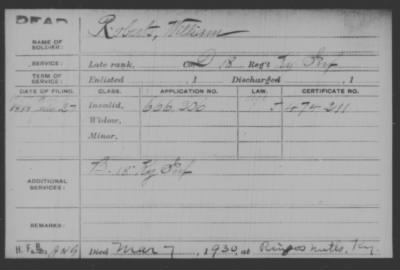 DEAD
Roberts, William
NAME OF SOLDIER:
SERVICE: Late rank, Co. D 18 Reg't Ky Inf
TERM OF SERVICE: Enlisted , 1 Discharged , 1
DATE OF FILING. CLASS. APPLICATION NO. LAW. CERTIFICATE NO.
Invalid, 666,300 474211
Widow,
Minor,
ADDITIONAL SERVICES: B. 18 Ky Inf
REMARKS:
Died Mar 7, 1930, at Ringos Mills, Ky.